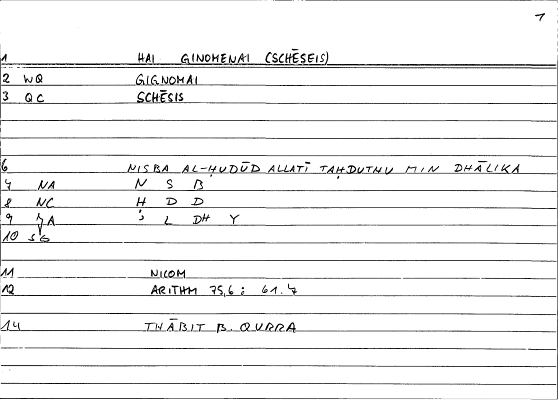 1
1 HAI GINOMENAI (SCHĒSEIS)
2 WQ GIGNOMAI
3 QC SCHĒSIS
6 NISBA AL-ḤUDŪD ALLATĪ TAḤDUTHU MIN DHĀLIKA
7 NA N S B
8 NC Ḥ D D
9 L DH Y
10 SG
11 NICOM
12 ARITHM 75,6 : 61.7
14 THĀBIT B. QURRA